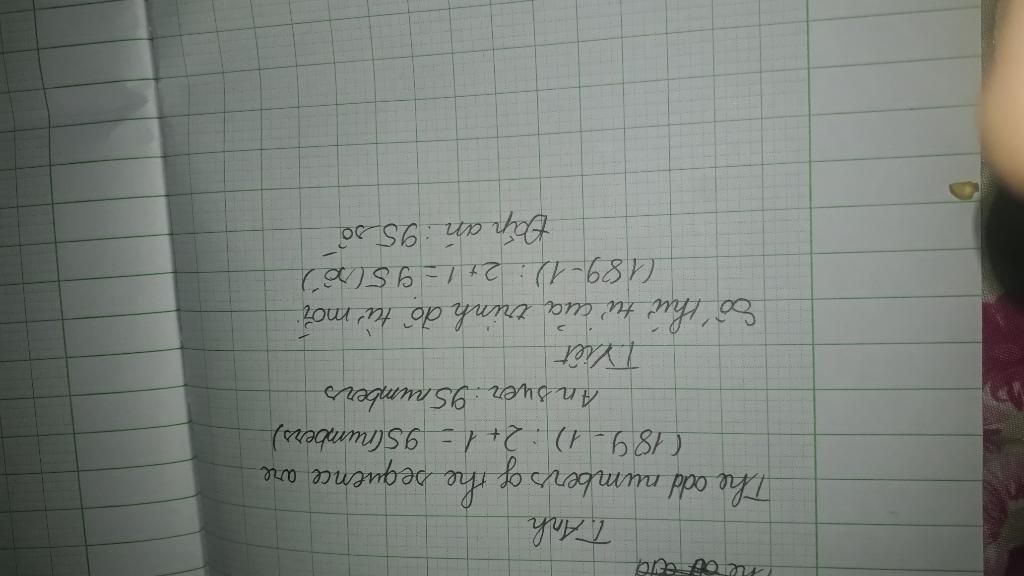 T.Anh
The odd numbers of the sequence are
(189 - 1) : 2 + 1 = 95 (numbers)
Answer: 95 numbers
T.Việt
Số thứ tự của trình đó từ mỗi
(189 - 1) : 2 + 1 = 95 (số)
Đáp án : 95 số